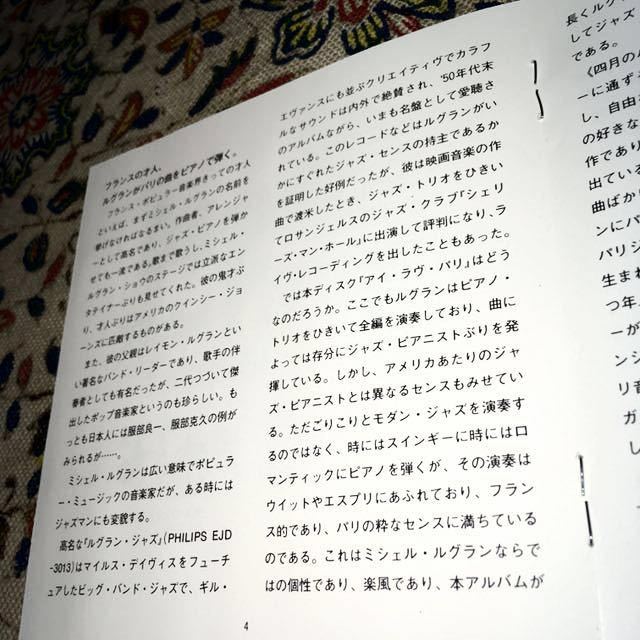 フランスの才人、
ルグランがパリの曲をピアノで弾く。
フランス・ポピュラー音楽界きっての才人
といえば、まずミシェル・ルグランの名前を
挙げなければなるまい。作曲者、アレンジャ
ーとして高名であり、ジャズ・ピアノを弾か
せても一流である。歌まで歌うし、ミシェル・
ルグラン・ショウのステージでは立派なエン
タテイナーぶりも見せてくれた。彼の鬼才ぶ
り、才人ぶりはアメリカのクインシー・ジョ
ーンズに匹敵するものがある。
また、彼の父親はレイモン・ルグランとい
い著名なバンド・リーダーであり、歌手の伴
奏者としても有名だったが、二代つづいて傑
出したポップ音楽家というのも珍らしい。も
っとも日本人には服部良一、服部克久の例が
みられるが……。
ミシェル・ルグランは広い意味でポピュラ
ー・ミュージックの音楽家だが、ある時には
ジャズマンにも変貌する。
高名な『ルグラン・ジャズ』(PHILIPS EJD
-3013)はマイルス・デイヴィスをフューチ
ュアしたビッグ・バンド・ジャズで、ギル・
エヴァンスにも並ぶクリエイティヴでカラフ
ルなサウンドは内外で絶賛され、'50年代末
のアルバムながら、いまも名盤として愛聴さ
れている。このレコードなどはルグランがい
かにすぐれたジャズ・センスの持主であるか
を証明した好例だったが、彼は映画音楽の作
曲で渡米したとき、ジャズ・トリオをひきい
てロサンジェルスのジャズ・クラブ「シェリ
ーズ・マン・ホール」に出演して評判になり、ラ
イヴ・レコーディングを出したこともあった。
では本ディスク『アイ・ラヴ・パリ』はどう
なのだろうか。ここでもルグランはピアノ・
トリオをひきいて全編を演奏しており、曲に
よっては存分にジャズ・ピアニストぶりを発
揮している。しかし、アメリカあたりのジャ
ズ・ピアニストとは異なるセンスもみせてい
る。ただごりごりとモダン・ジャズを演奏す
るのではなく、時にはスインギーに時にはロ
マンティックにピアノを弾くが、その演奏は
ウイットやエスプリにあふれており、フラン
ス的であり、パリの粋なセンスに満ちている
のである。これはミシェル・ルグランならで
はの個性であり、楽風であり、本アルバムが
4
長くルグ
してジャズ
である。
《四月の
ーに通ず
し、自由
の好きな
作であり
出ている
曲ばか
ンにパ
パリジ
生ま
つ年、
ーが
ンシ
リ音
ガ
し